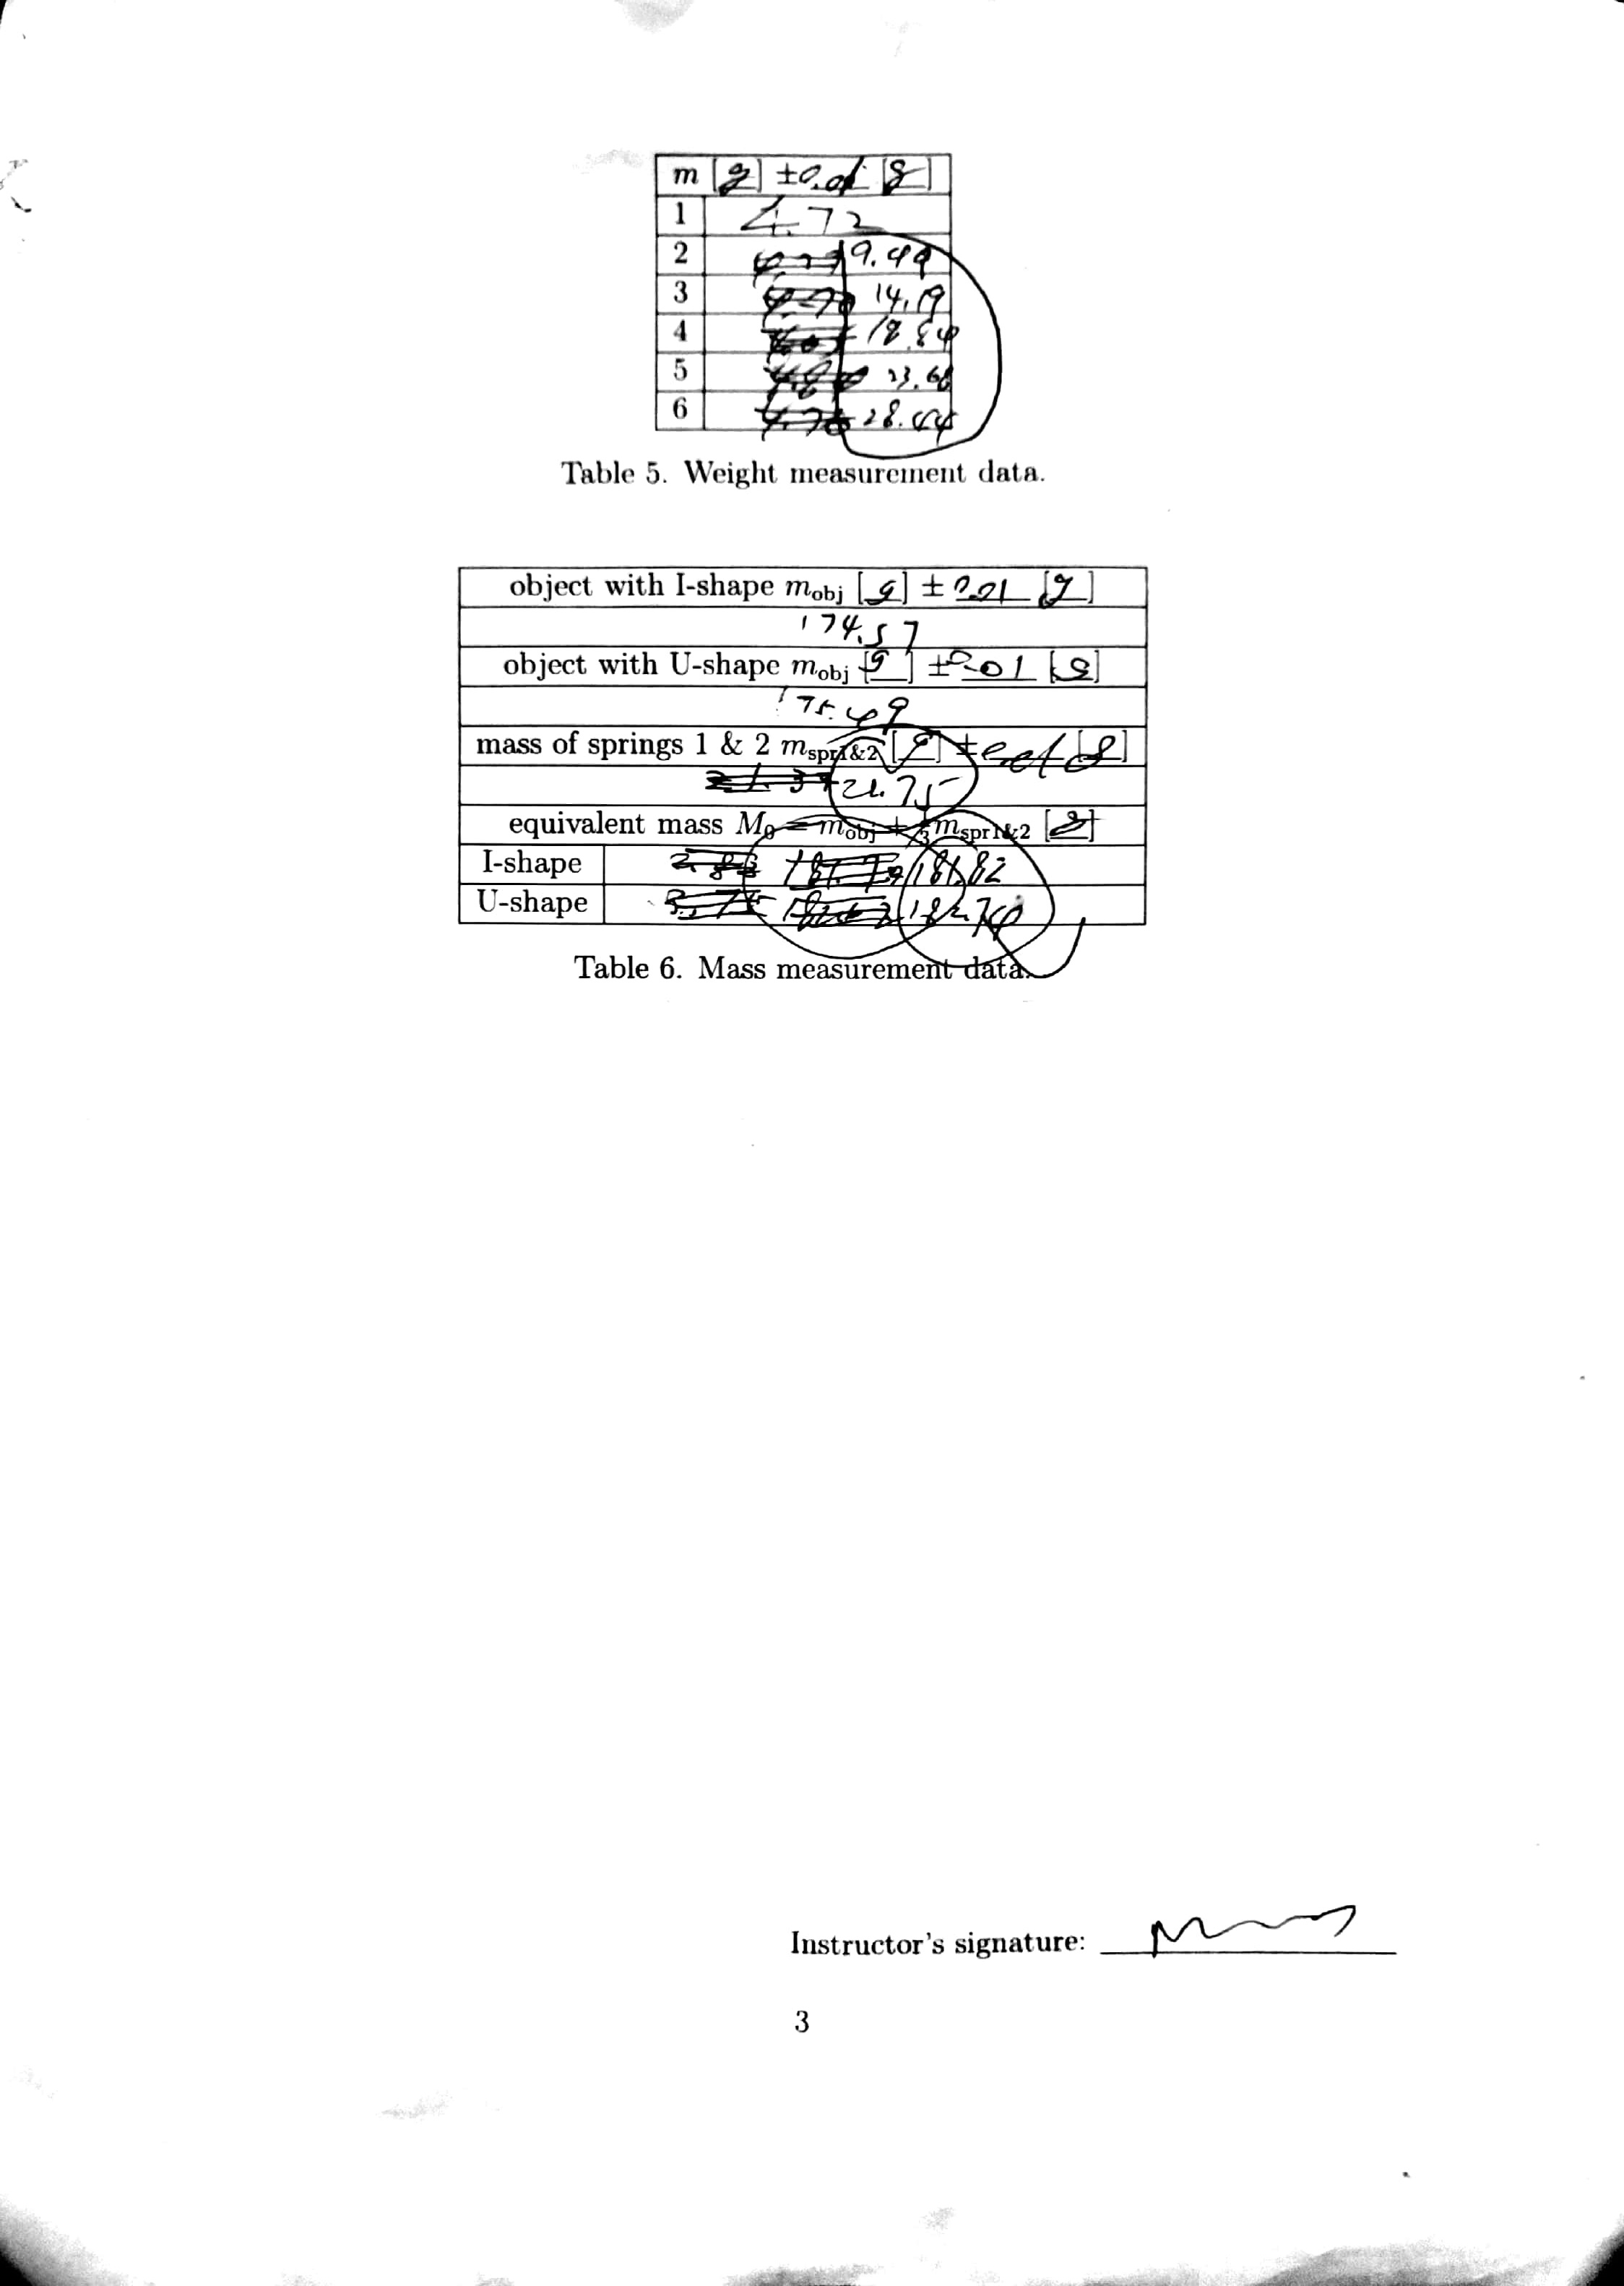 m [g] ±0.01 [g]
1 4.72
2 9.49
3 14.19
4 18.84
5
6 28.44
Table 5. Weight measurement data.
object with I-shape mobj [g] ± 0.01 [g]
174.57
object with U-shape mobj [g] ±0.01 [g]
175.49
mass of springs 1 & 2 mspr1&2 [g] ±0.01 [g]
21.75
equivalent mass M0 = mobj + 1/3 mspr1&2 [g]
I-shape 181.82
U-shape 182.74
Table 6. Mass measurement data.
Instructor's signature:
3